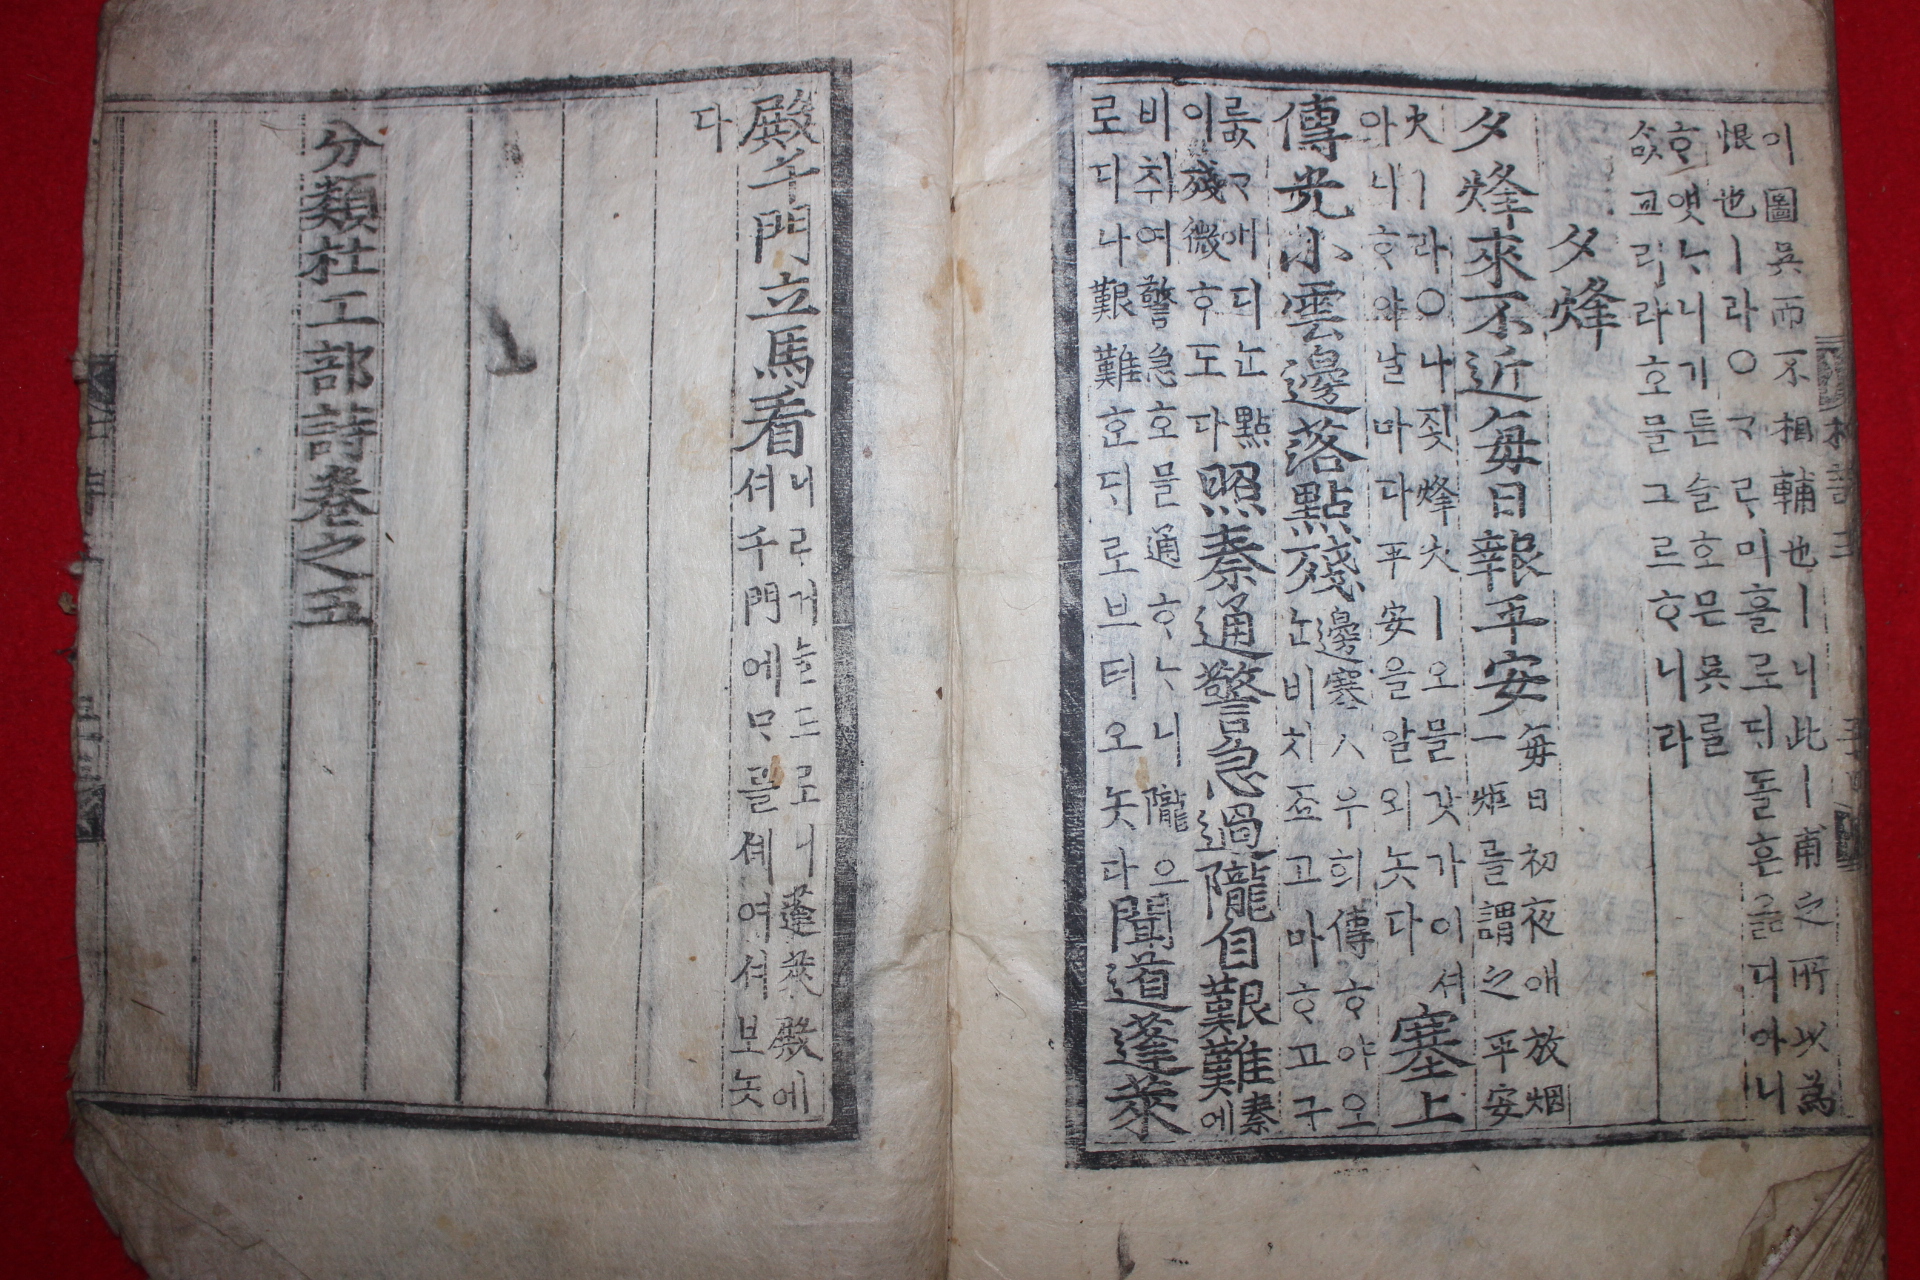 이圖吳而不相輔也ㅣ니此ㅣ甫之所以為
恨也ㅣ라○ᄀᆞᄅᆞ미흘로ᄃᆡ돌흔옮디아니
ᄒᆞ얫ᄂᆞ니기튼슬호믄吳를
ᄉᆞᇝ교리라호믈그르ᄒᆞ니라
夕烽
夕烽來不近每日報平安
每日初夜애放烟
一炬를謂之平安
火ㅣ라○나죗烽火ㅣ오믈갓가이셔
아니ᄒᆞ야날마다平安을알외놋다
塞上
傳光小雲邊落點殘
邊塞ㅅ우희傳ᄒᆞ야오
논비치죠고마ᄒᆞ고구
룺ᄀᆞ애디논點
이殘微ᄒᆞ도다
照秦通警急過隴自艱難
秦
에
비취여警急호믈通ᄒᆞᄂᆞ니隴으
로디나艱難혼ᄃᆡ로브터오놋다
聞道蓬萊
殿千門立馬看
니ᄅᆞ거늘드로니蓬萊殿에
셔千門에ᄆᆞᄅᆞᆯ셰여셔보놋
다
分類杜工部詩卷之五